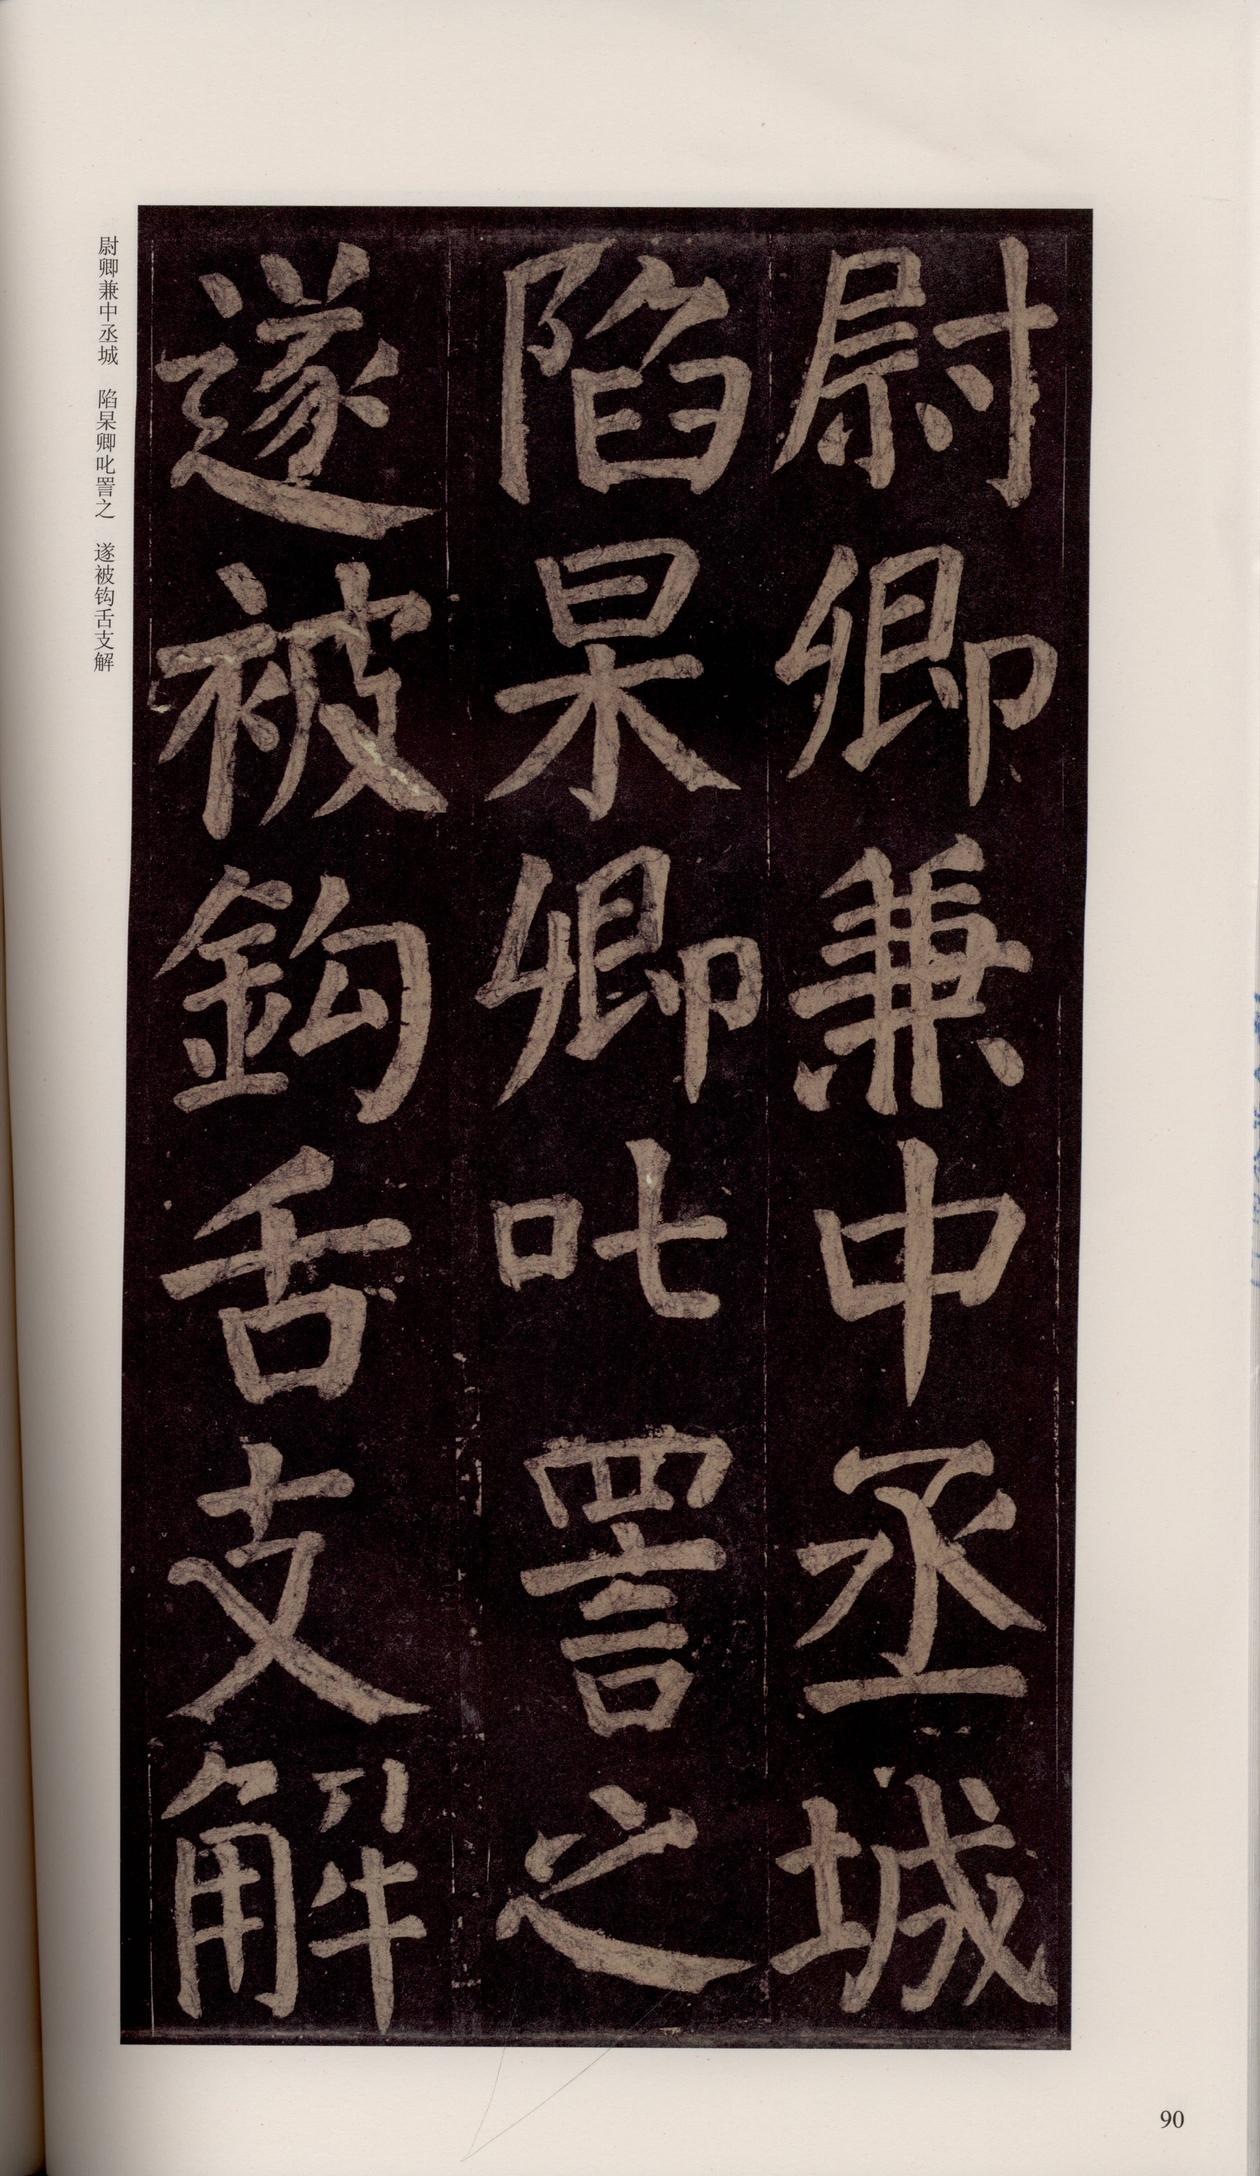 尉卿兼中丞城
陷杲卿叱詈之
遂被鈎舌支解
尉卿兼中丞城　陷杲卿叱詈之　遂被钩舌支解
90